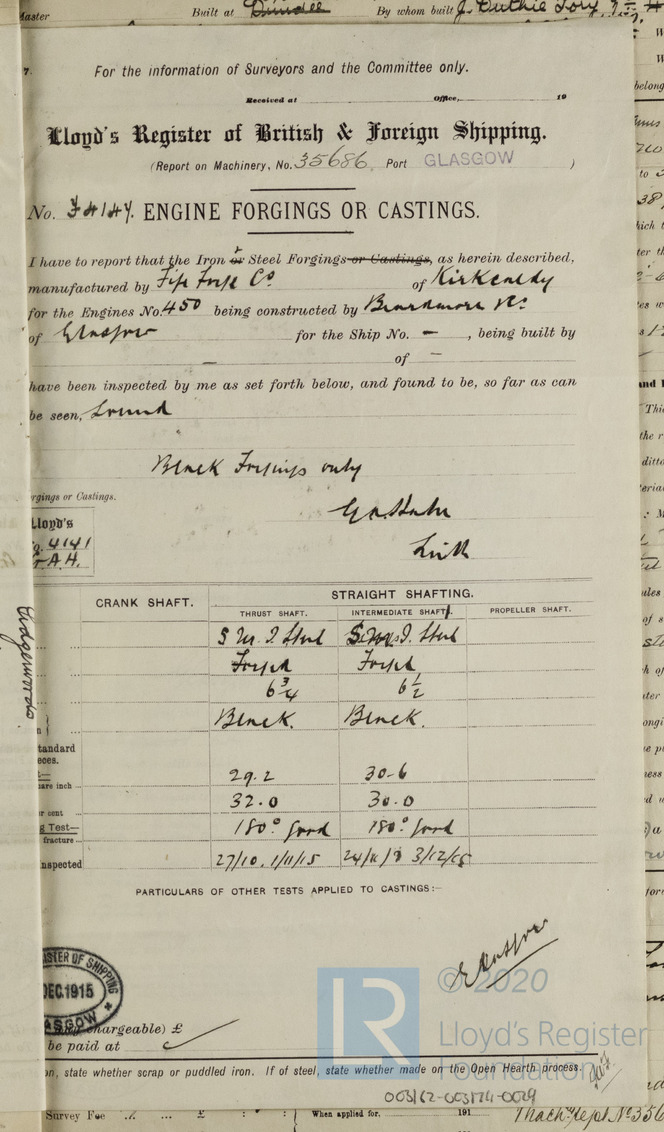 Master Built at Dundee By whom built J. Duthie Torry
7.
For the information of Surveyors and the Committee only.
Received at Office, 19
Lloyd's Register of British & Foreign Shipping.
(Report on Machinery, No. 35686 Port GLASGOW )
No. 4147. ENGINE FORGINGS OR CASTINGS.
I have to report that the Iron or Steel Forgings or Castings, as herein described,
manufactured by Fife Forge Co of Kirkcaldy
for the Engines No. 450 being constructed by Beardmore & Co
of Glasgow for the Ship No. – , being built by
– of –
have been inspected by me as set forth below, and found to be, so far as can
be seen, Sound
Black Forgings only
Leith
rgings or Castings.
Lloyd's
4141
A.H.
CRANK SHAFT. STRAIGHT SHAFTING.
THRUST SHAFT. INTERMEDIATE SHAFT. PROPELLER SHAFT.
S M I Steel S M I Steel
Forged Forged
6 3/4 6 1/2
Black. Black.
tandard
eces.
29.2 30.6
are inch
32.0 30.0
r cent
g Test—
180° good 180° good
fracture
nspected 27/10. 1/11/15 3/12/15
PARTICULARS OF OTHER TESTS APPLIED TO CASTINGS:—
Glasgow
ISTER OF SHIPPING
DEC. 1915
ASGOW
chargeable) £
be paid at
on, state whether scrap or puddled iron. If of steel, state whether made on the Open Hearth process.
© 2020
LR
Lloyd's Register
Foundation
003162-003171-0029
Survey Fee £ : : When applied for. 191 Machy Rept No 356